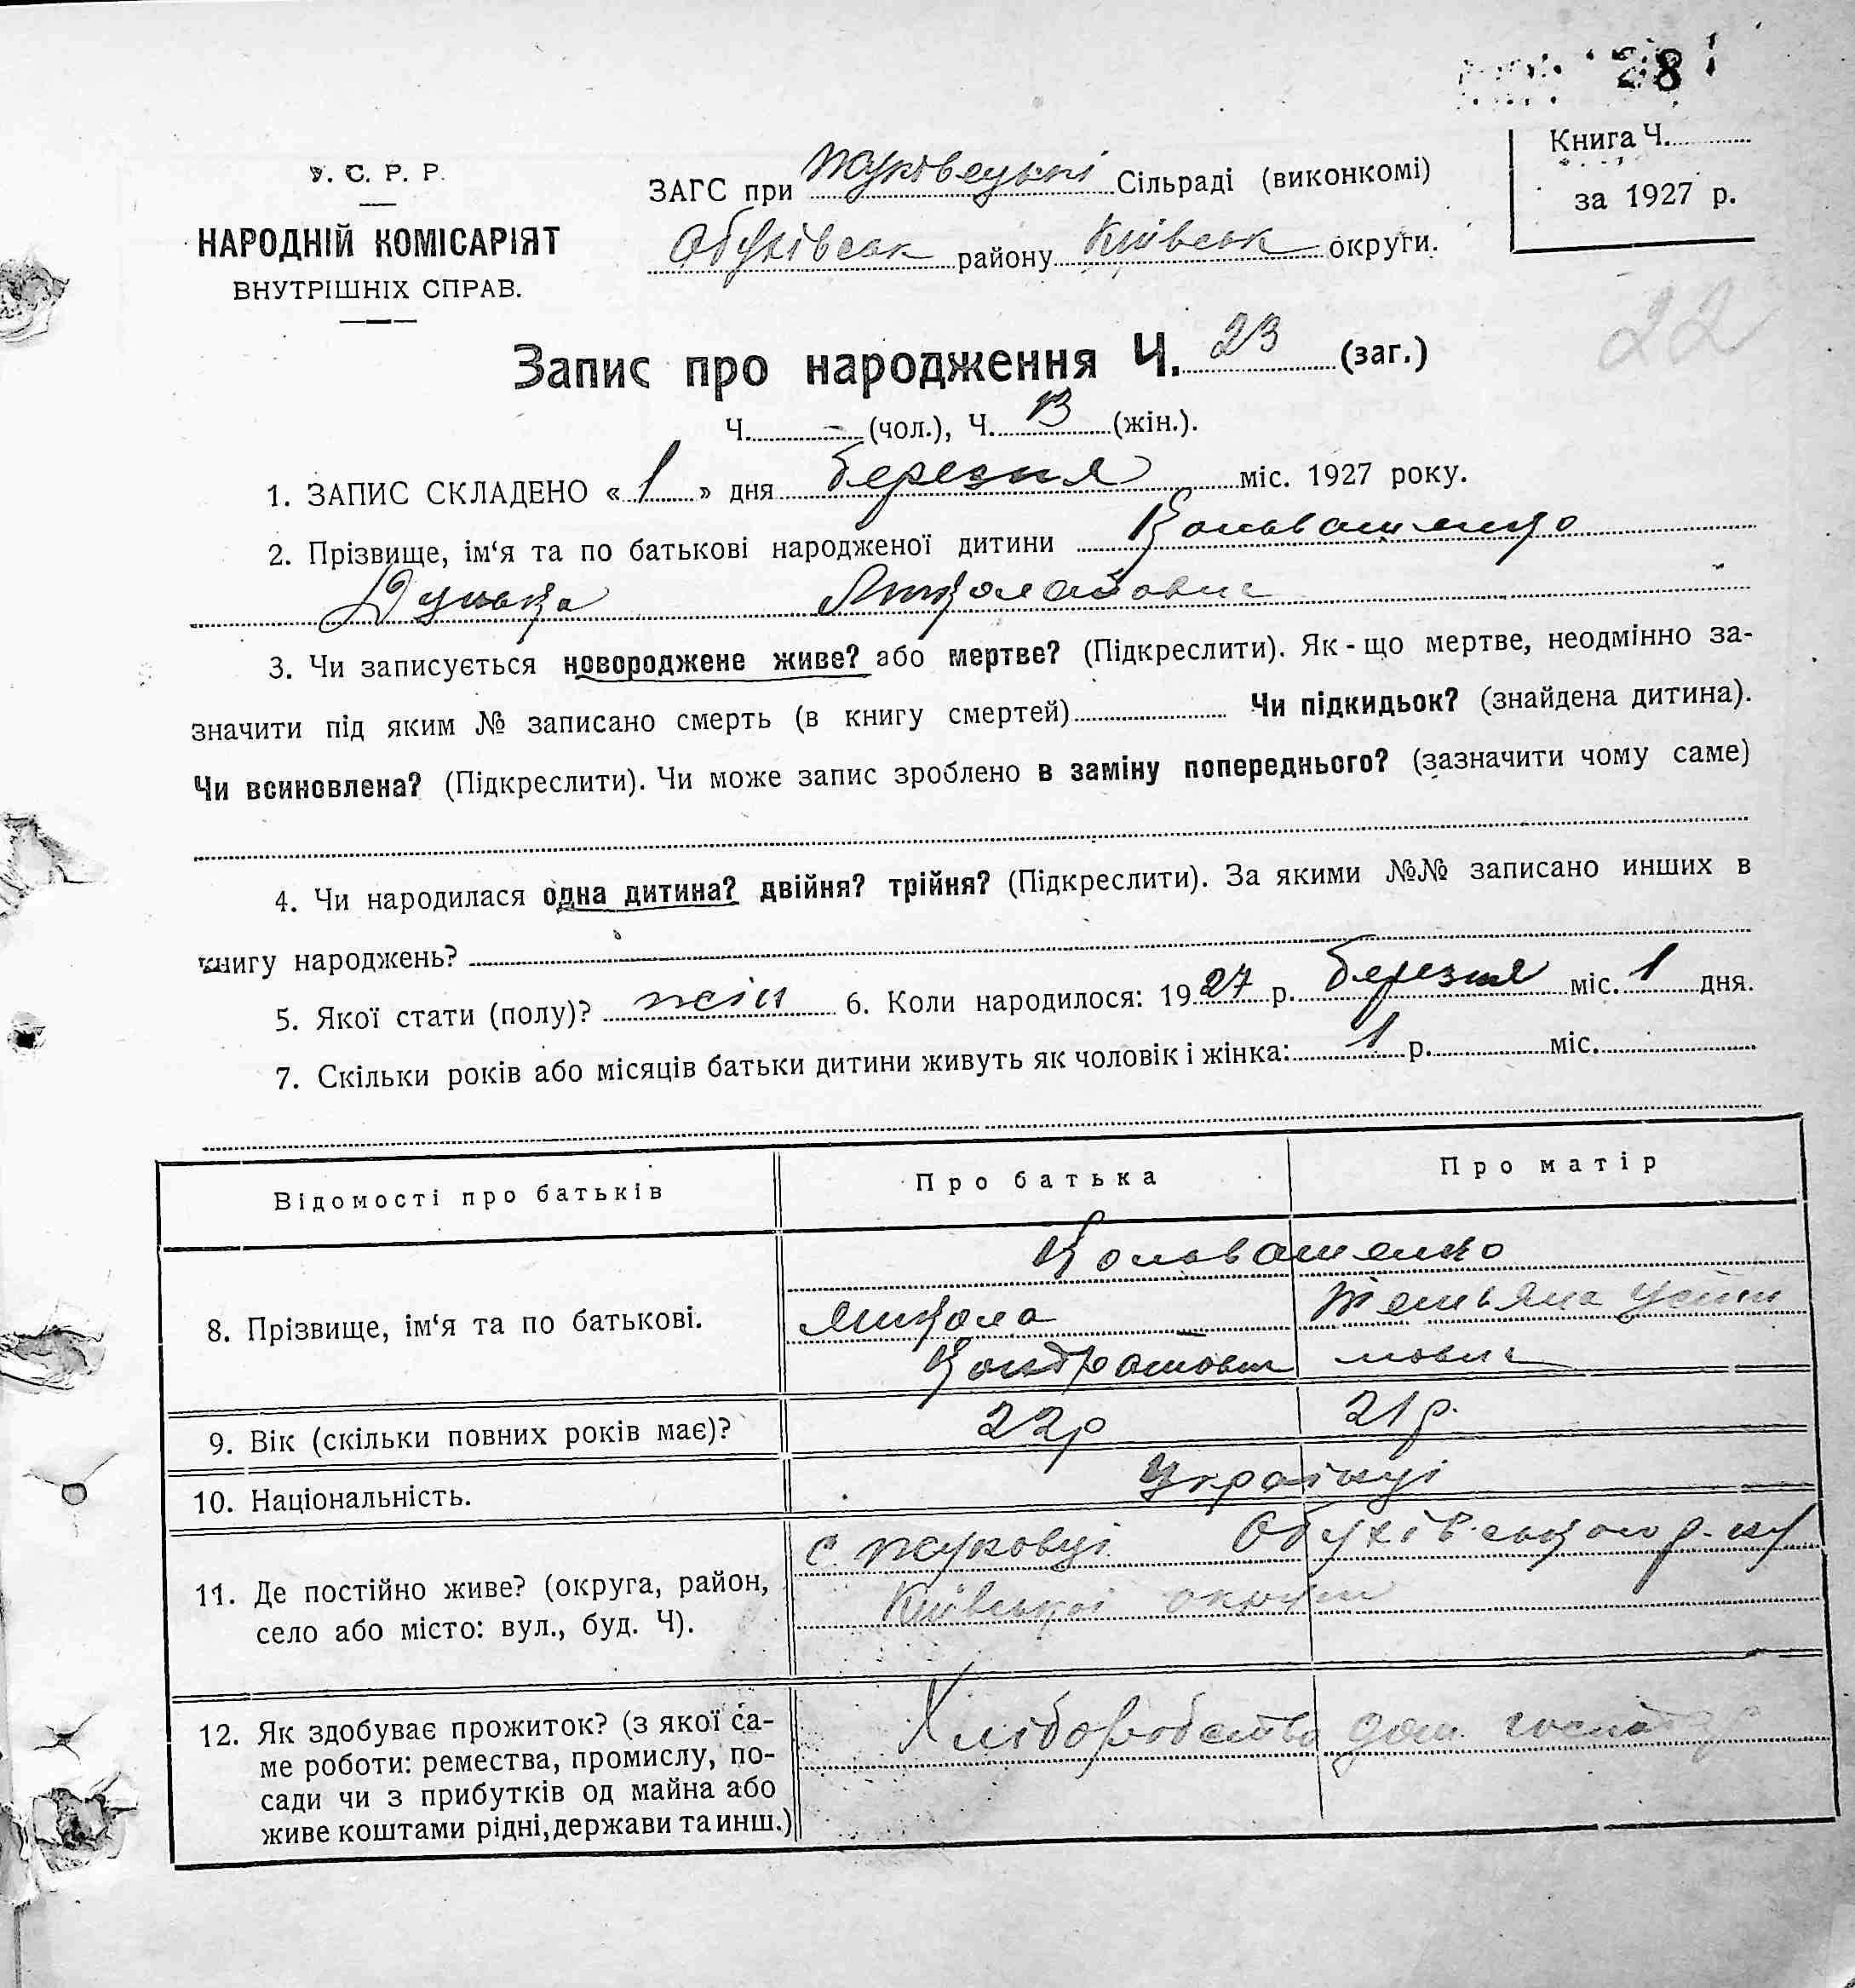 28
Книга Ч.
за 1927 р.
У. С. Р. Р.
НАРОДНІЙ КОМІСАРІЯТ
ВНУТРІШНІХ СПРАВ.
ЗАГС при Жуковецькі Сільраді (виконкомі)
Обухівськ району Київськ округи.
22
Запис про народження Ч. 23 (заг.)
Ч. - (чол.), Ч. 13 (жін.).
1. ЗАПИС СКЛАДЕНО « 1 » дня березня міс. 1927 року.
2. Прізвище, ім‘я та по батькові народженої дитини Кольвашенко
Дунька Миколаївна
3. Чи записується новороджене живе? або мертве? (Підкреслити). Як-що мертве, неодмінно за-
значити під яким № записано смерть (в книгу смертей) Чи підкидьок? (знайдена дитина).
Чи всиновлена? (Підкреслити). Чи може запис зроблено в заміну попереднього? (зазначити чому саме)
4. Чи народилася одна дитина? двійня? трійня? (Підкреслити). За якими №№ записано инших в
книгу народжень?
5. Якої стати (полу)? жін 6. Коли народилося: 1927 р. березня міс. 1 дня.
7. Скільки років або місяців батьки дитини живуть як чоловік і жінка: 1 р. міс.
Відомості про батьків Про батька Про матір
8. Прізвище, ім‘я та по батькові.
Кольвашенко
Микола Тетьяна Усти
Кондратович мовна
9. Вік (скільки повних років має)? 22р 21р.
10. Національність. Українці
11. Де постійно живе? (округа, район,
село або місто: вул., буд. Ч).
с Жуковці Обухівського р-ну
Київської округи
12. Як здобуває прожиток? (з якої са-
ме роботи: ремества, промислу, по-
сади чи з прибутків од майна або
живе коштами рідні, держави та инш.)
Хліборобство дом.